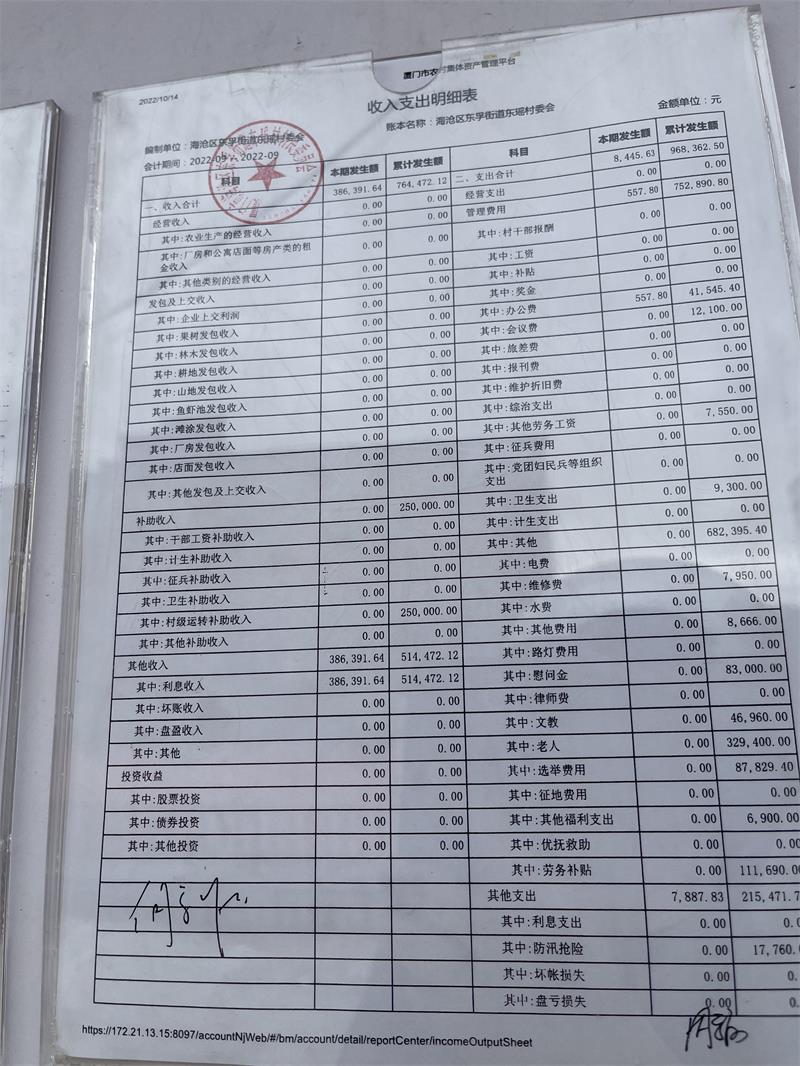 厦门市农村集体资产管理平台
2022/10/14
收入支出明细表
账本名称：海沧区东孚街道东瑶村委会
金额单位：元
编制单位：海沧区东孚街道东瑶村委会
会计期间：2022-09 - 2022-09
科目 本期发生额 累计发生额
一、收入合计 386,391.64 764,472.12
经营收入 0.00 0.00
其中:农业生产的经营收入 0.00 0.00
其中:厂房和公寓店面等房产类的租
金收入 0.00 0.00
其中:其他类别的经营收入 0.00 0.00
发包及上交收入 0.00 0.00
其中:企业上交利润 0.00 0.00
其中:果树发包收入 0.00 0.00
其中:林木发包收入 0.00 0.00
其中:耕地发包收入 0.00 0.00
其中:山地发包收入 0.00 0.00
其中:鱼虾池发包收入 0.00 0.00
其中:滩涂发包收入 0.00 0.00
其中:厂房发包收入 0.00 0.00
其中:店面发包收入 0.00 0.00
其中:其他发包及上交收入 0.00 0.00
补助收入 0.00 250,000.00
其中:干部工资补助收入 0.00 0.00
其中:计生补助收入 0.00 0.00
其中:征兵补助收入 0.00 0.00
其中:卫生补助收入 0.00 0.00
其中:村级运转补助收入 0.00 250,000.00
其中:其他补助收入 0.00 0.00
其他收入 386,391.64 514,472.12
其中:利息收入 386,391.64 514,472.12
其中:坏账收入 0.00 0.00
其中:盘盈收入 0.00 0.00
其中:其他 0.00 0.00
投资收益 0.00 0.00
其中:股票投资 0.00 0.00
其中:债券投资 0.00 0.00
其中:其他投资 0.00 0.00
科目 本期发生额 累计发生额
二、支出合计 8,445.63 968,362.50
经营支出 0.00 0.00
管理费用 557.80 752,890.80
其中:村干部报酬 0.00 0.00
其中:工资 0.00 0.00
其中:补贴 0.00 0.00
其中:奖金 0.00 0.00
其中:办公费 557.80 41,545.40
其中:会议费 0.00 12,100.00
其中:旅差费 0.00 0.00
其中:报刊费 0.00 0.00
其中:维护折旧费 0.00 0.00
其中:综治支出 0.00 0.00
其中:其他劳务工资 0.00 7,550.00
其中:征兵费用 0.00 0.00
其中:党团妇民兵等组织
支出 0.00 0.00
其中:卫生支出 0.00 9,300.00
其中:计生支出 0.00 0.00
其中:其他 0.00 682,395.40
其中:电费 0.00 0.00
其中:维修费 0.00 7,950.00
其中:水费 0.00 0.00
其中:其他费用 0.00 8,666.00
其中:路灯费用 0.00 0.00
其中:慰问金 0.00 83,000.00
其中:律师费 0.00 0.00
其中:文教 0.00 46,960.00
其中:老人 0.00 329,400.00
其中:选举费用 0.00 87,829.40
其中:征地费用 0.00 0.00
其中:其他福利支出 0.00 6,900.00
其中:优抚救助 0.00 0.00
其中:劳务补贴 0.00 111,690.00
其他支出 7,887.83 215,471.7
其中:利息支出 0.00 0.0
其中:防汛抢险 0.00 17,760.
其中:坏帐损失 0.00 0.
其中:盘亏损失 0.00 0.
https://172.21.13.15:8097/accountNjWeb/#/bm/account/detail/reportCenter/incomeOutputSheet